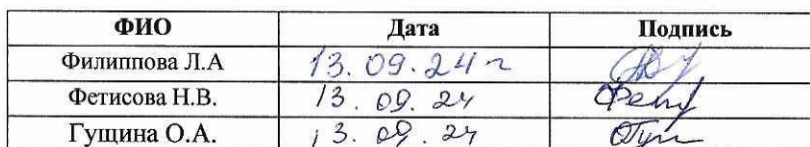 ФИО Дата Подпись
Филиппова Л.А 13.09.24 г
Фетисова Н.В. 13.09.24
Гущина О.А. 13.09.24